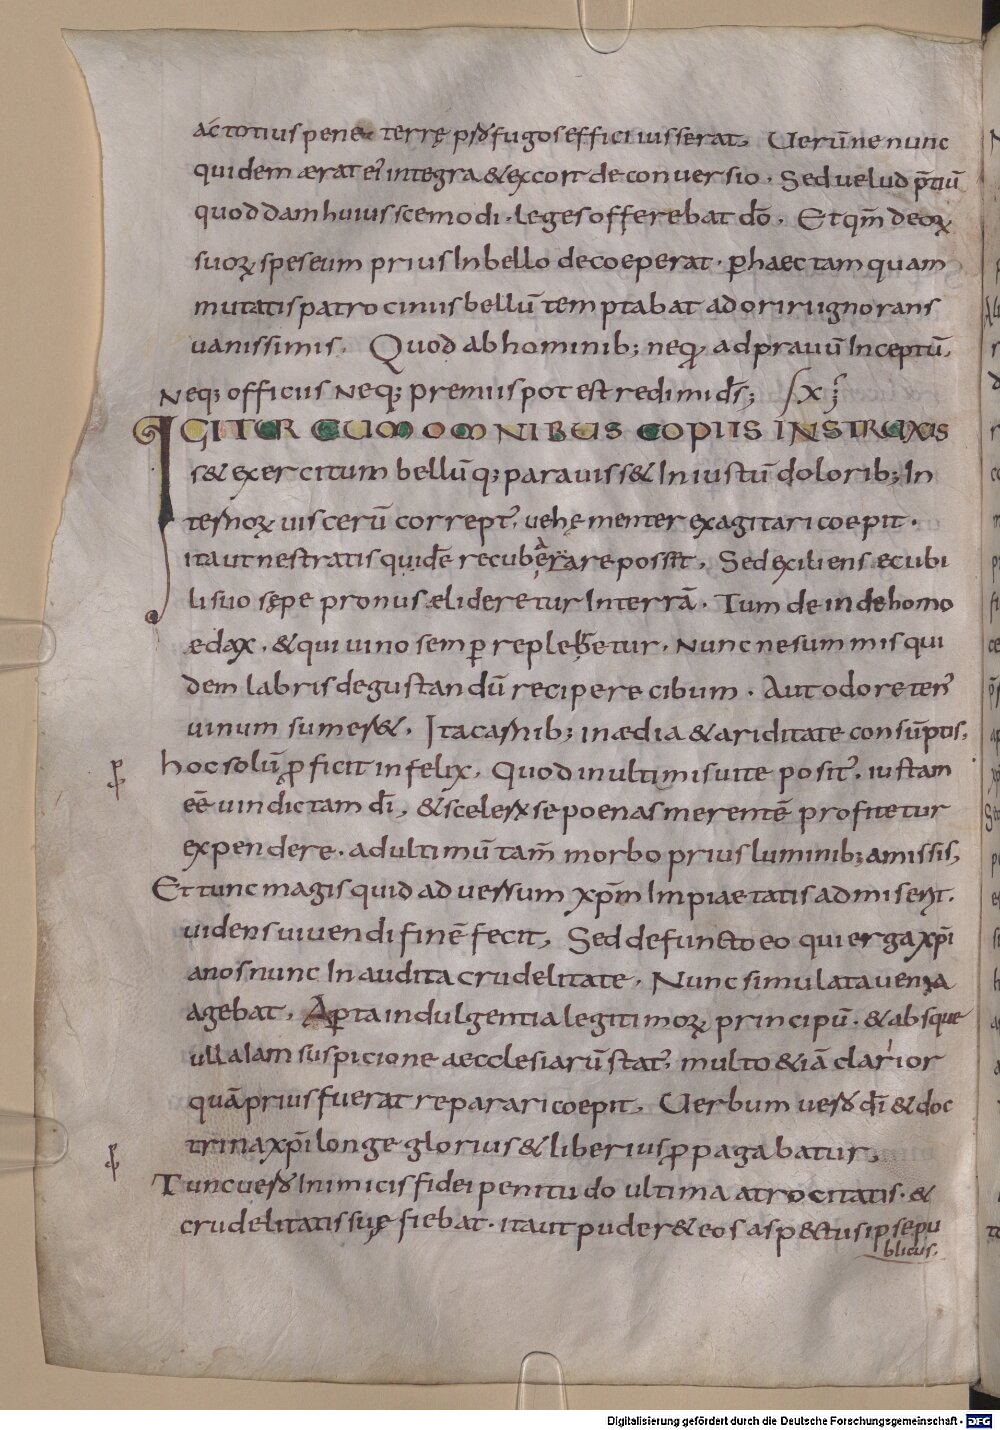 ac totius pene terrę p̄sof ugos effici iusserat. Uerū ne nunc
quidem ærat ei' integra & ex corde conuersio. Sed uelud p̄tiū
quoddam huiuscemodi. leges offerebat dō. Et qm̄ deoꝝ
suoꝝ spes eum prius In bello decoeperat. ꝑ haec tam quam
mutatis patrocinus bellū temptabat adoriri ignorans
uanissimis. Quod ab hominib; neq; ad prauū Inceptū,
Neq; officiis Neq; premiis potest redimi ds̄; 
IGITUR CUM OMNIBUS COPIIS INSTRUXIS
s& exercitum bellūq; parauiss& In iustū dolorib; In
ternoꝝ uiscerū corrept', uehęmenter exagitari coepit.
ita ut ne stratis quidē recuberare poss&. Sed exiliens æ cubi
li suo sępe pronus ælideretur In terrā. Tum deinde homo
ædax, & qui uino semꝑ repleretur. Nunc ne summis qui
dem labris degustandū recipere cibum. Aut odore ten'
uinum sumer&. Ita carnib; inædia & ariditate consūptis,
hoc solū ꝓficit infelix. Quod in ultimis uite posit', iustam
eē uindictam dī, & sceler se poenas merentē profitetur
expendere. ad ultimū tam̄ morbo prius luminib; amissis,
Et tunc magis quid aduersum xp̄m Impiaetatis admiserit.
uidens uiuendi finē fecit. Sed defuncto eo qui erga xp̄i
anos nunc Inaudita crudelitate. Nunc simulata uenia
agebat. Aꝑta indulgentia legitimoꝝ principū. & absque
ullalam suspicione aecclesiarū stat', multo & iā clarior
quā prius fuerat reparari coepit. Uerbum uero dī & doc
trina xp̄i longe glorius & liberius ꝓpagabatur,
Tunc uero Inimicis fidei penitudo ultima atrocitatis. &
crudelitatis suę fiebat. ita ut puder& eos aspectus ipse pu
blicus.
Digitalisierung gefördert durch die Deutsche Forschungsgemeinschaft - DFG